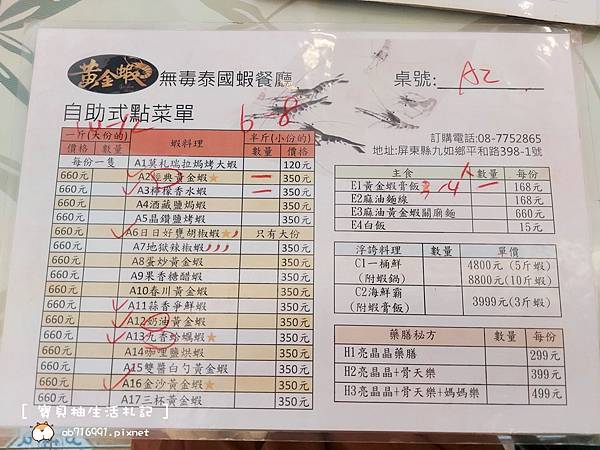 黃金蝦
無毒泰國蝦餐廳
桌號: A2
自助式點菜單
6-8
訂購電話:08-7752865
地址:屏東縣九如鄉平和路398-1號
一斤(大份的) 蝦料理 半斤(小份的)
價格 數量 數量 價格
每份一隻 A1莫札瑞拉焗烤大蝦 120元
660元 A2經典黃金蝦★ 一 350元
660元 A3檸檬香水蝦 一 350元
660元 A4酒藏鹽焗蝦 350元
660元 A5晶鑽鹽烤蝦 350元
660元 A6日日好甕胡椒蝦★ 只有大份
660元 A7地獄辣椒蝦 350元
660元 A8蛋炒黃金蝦 350元
660元 A9果香糖醋蝦 350元
660元 A10春川黃金蝦 350元
660元 A11蒜香爭鮮蝦 350元
660元 A12奶油黃金蝦 350元
660元 A13九香蛤蠣蝦★ 350元
660元 A14咖哩鹽烘蝦 350元
660元 A15雙醬白勺黃金蝦 350元
660元 A16金沙黃金蝦★ 350元
660元 A17三杯黃金蝦 350元
主食 數量 每份
E1黃金蝦膏飯 3-4人 一 168元
E2麻油麵線 168元
E3麻油黃金蝦關廟麵 660元
E4白飯 15元
浮誇料理 數量 單價
C1一桶鮮 4800元(5斤蝦)
(附蝦鍋) 8800元(10斤蝦)
C2海鮮霸 3999元(3斤蝦)
(附蝦膏飯)
藥膳秘方 數量 每份
H1亮晶晶藥膳 299元
H2亮晶晶+骨天樂 399元
H3亮晶晶+骨天樂+媽媽樂 499元
[ 寶貝柚生活札記 ]
ab716991.pixnet